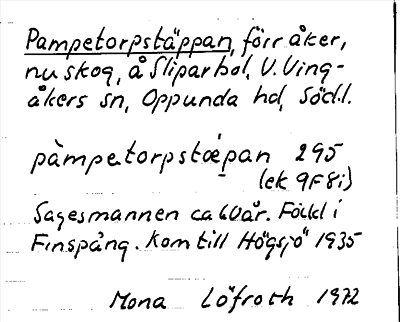 Pampetorpstäppan, förr åker,
nu skog, å Sliparbol, V. Ving-
åkers sn, Oppunda hd, Södl.
pàmpetorpstæ̀pan 295
(ek 9F8i)
Sagesmannen ca 60 år. Född i
Finspång. Kom till Högsjö 1935
Mona Löfroth 1972